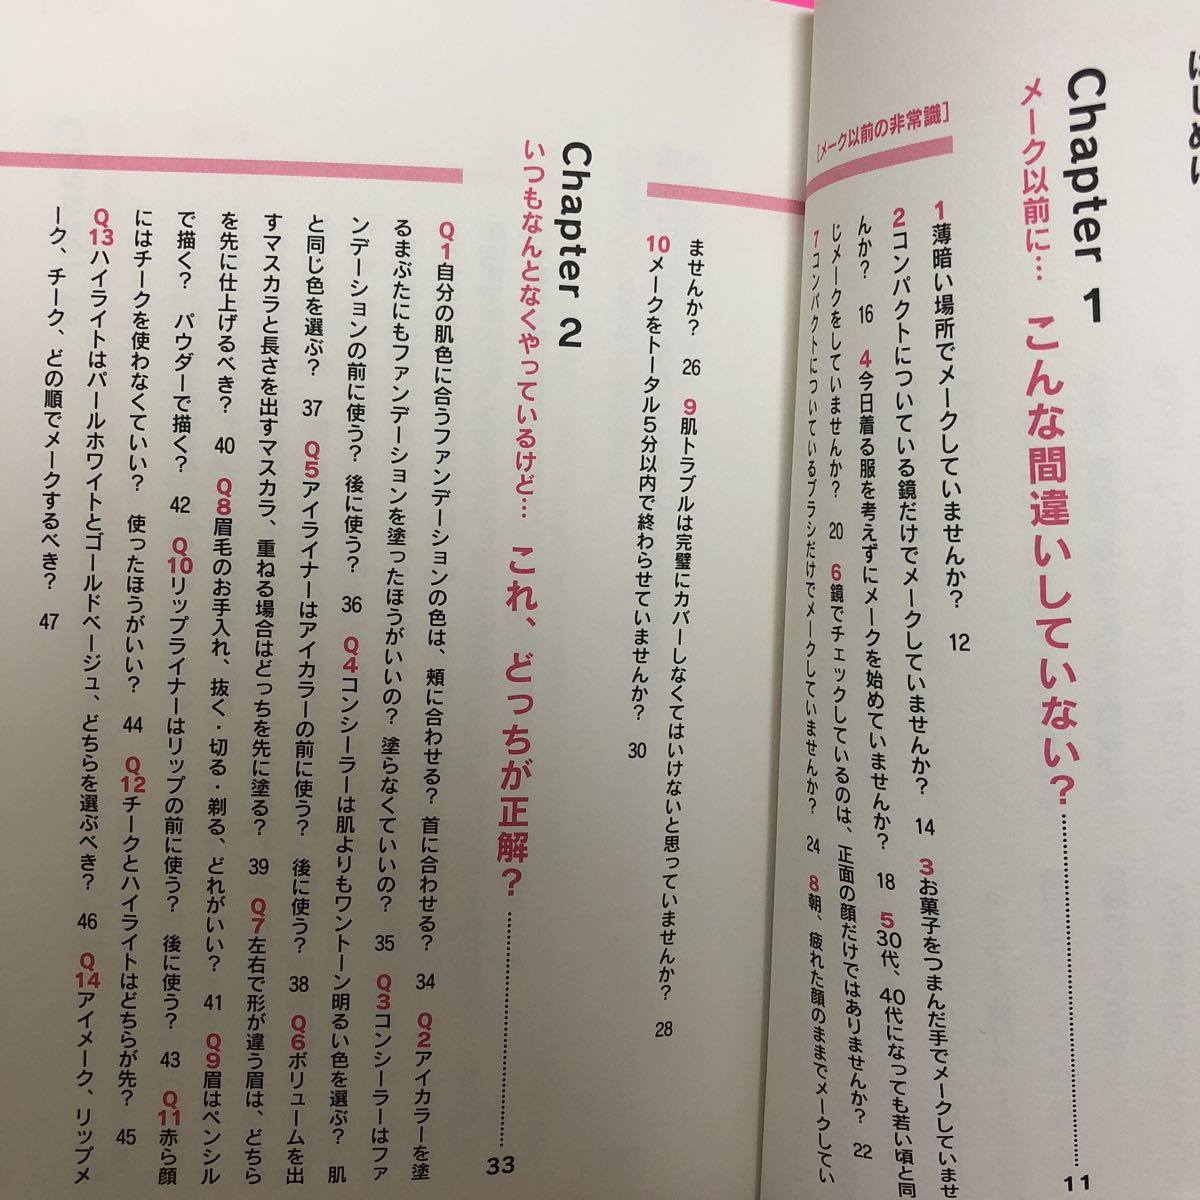 はじめに
Chapter 1
メーク以前に… こんな間違いしていない？……………………11
［メーク以前の非常識］
1 薄暗い場所でメークしていませんか？ 12
2 コンパクトについている鏡だけでメークしていませんか？ 14 3 お菓子をつまんだ手でメークしていませ
んか？ 16 4 今日着る服を考えずにメークを始めていませんか？ 18 5 30代、40代になっても若い頃と同
じメークをしていませんか？ 20 6 鏡でチェックしているのは、正面の顔だけではありませんか？ 22
7 コンパクトについているブラシだけでメークしていませんか？ 24 8 朝、疲れた顔のままでメークしてい
ませんか？ 26 9 肌トラブルは完璧にカバーしなくてはいけないと思っていませんか？ 28
10 メークをトータル5分以内で終わらせていませんか？ 30
Chapter 2
いつもなんとなくやっているけど… これ、どっちが正解？……………………33
Q1 自分の肌色に合うファンデーションの色は、頬に合わせる？ 首に合わせる？ 34 Q2 アイカラーを塗
るまぶたにもファンデーションを塗ったほうがいいの？ 塗らなくていいの？ 35 Q3 コンシーラーはファ
ンデーションの前に使う？ 後に使う？ 36 Q4 コンシーラーは肌よりもワントーン明るい色を選ぶ？ 肌
と同じ色を選ぶ？ 37 Q5 アイライナーはアイカラーの前に使う？ 後に使う？ 38 Q6 ボリュームを出
すマスカラと長さを出すマスカラ、重ねる場合はどっちを先に塗る？ 39 Q7 左右で形が違う眉は、どちら
を先に仕上げるべき？ 40 Q8 眉毛のお手入れ、抜く・切る・剃る、どれがいい？ 41 Q9 眉はペンシル
で描く？ パウダーで描く？ 42 Q10 リップライナーはリップの前に使う？ 後に使う？ 43 Q11 赤ら顔
にはチークを使わなくていい？ 使ったほうがいい？ 44 Q12 チークとハイライトはどちらが先？ 45
Q13 ハイライトはパールホワイトとゴールドベージュ、どちらを選ぶべき？ 46 Q14 アイメーク、リップメ
ーク、チーク、どの順でメークするべき？ 47